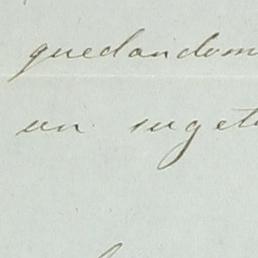 quedandom
un suget